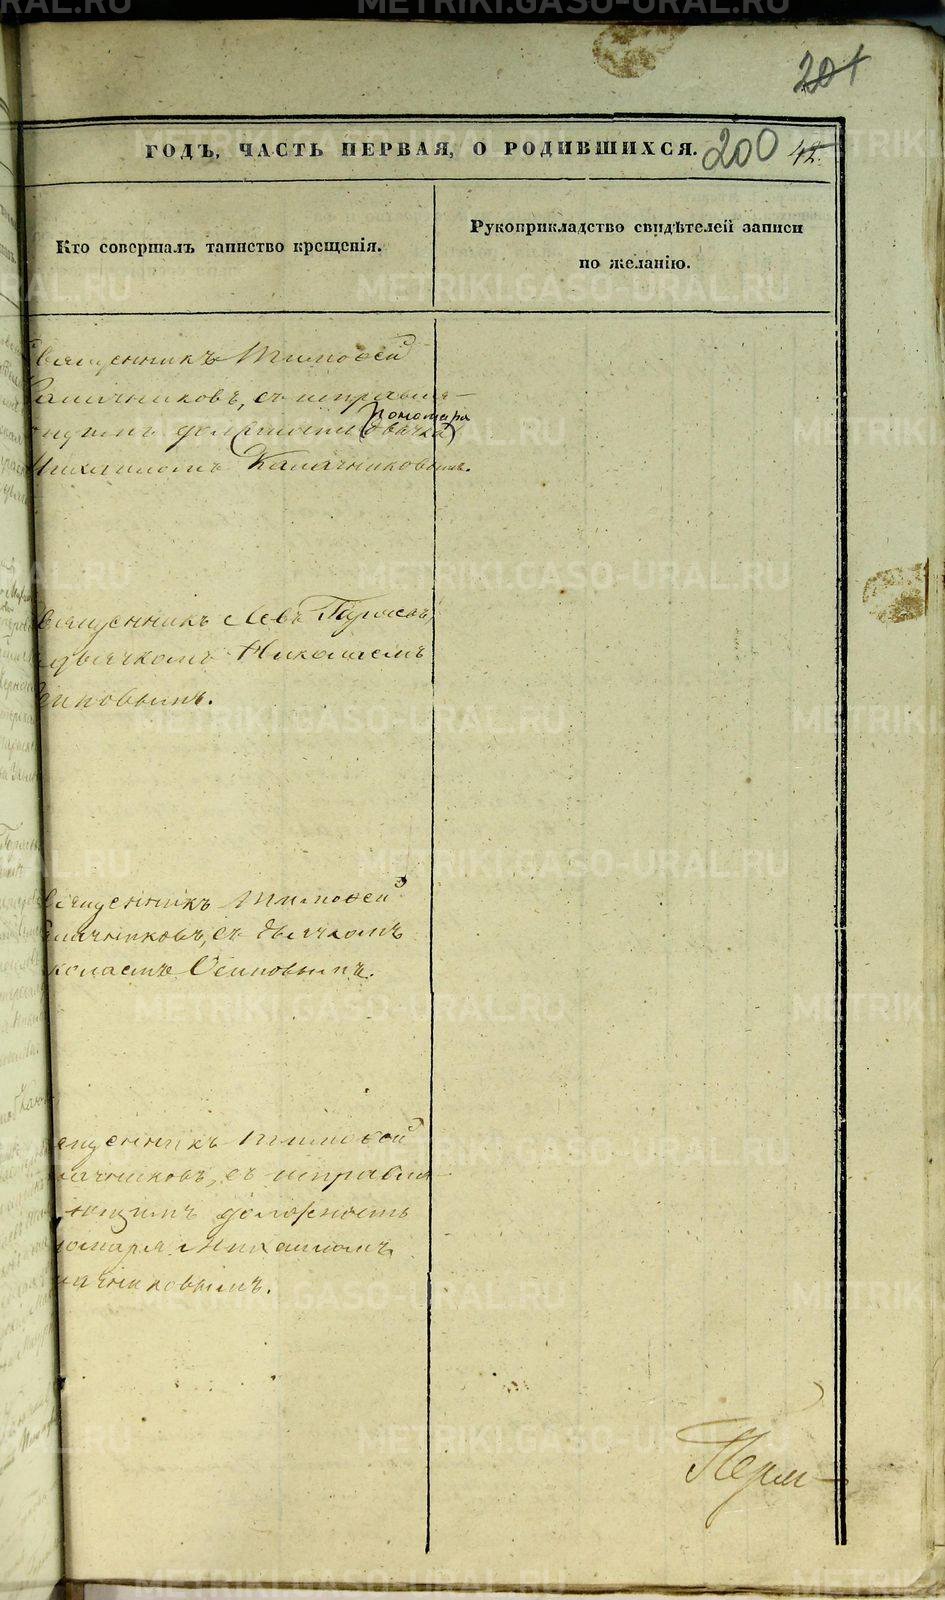 201
ГОДЪ, ЧАСТЬ ПЕРВАЯ, О РОДИВШИХСЯ. 200 42.
Кто совершалъ таинство крещенія.
Рукоприкладство свидѣтелей записи
по желанію.
Священникъ Тимоѳей
Калачниковъ, съ исправля-
ющимъ должность (дьячка) пономаря
Михаиломъ Калачниковымъ.
Священникъ Левъ
дьячкомъ Николаемъ
Осиповымъ.
Священникъ Тимоѳей
Калачниковъ, съ дьячкомъ
Николаемъ Осиповымъ.
Священникъ Тимоѳей
Калачниковъ, съ исправля-
ющимъ должность
пономаря Михаиломъ
Калачниковымъ.
METRIKI.GASO-URAL.RU